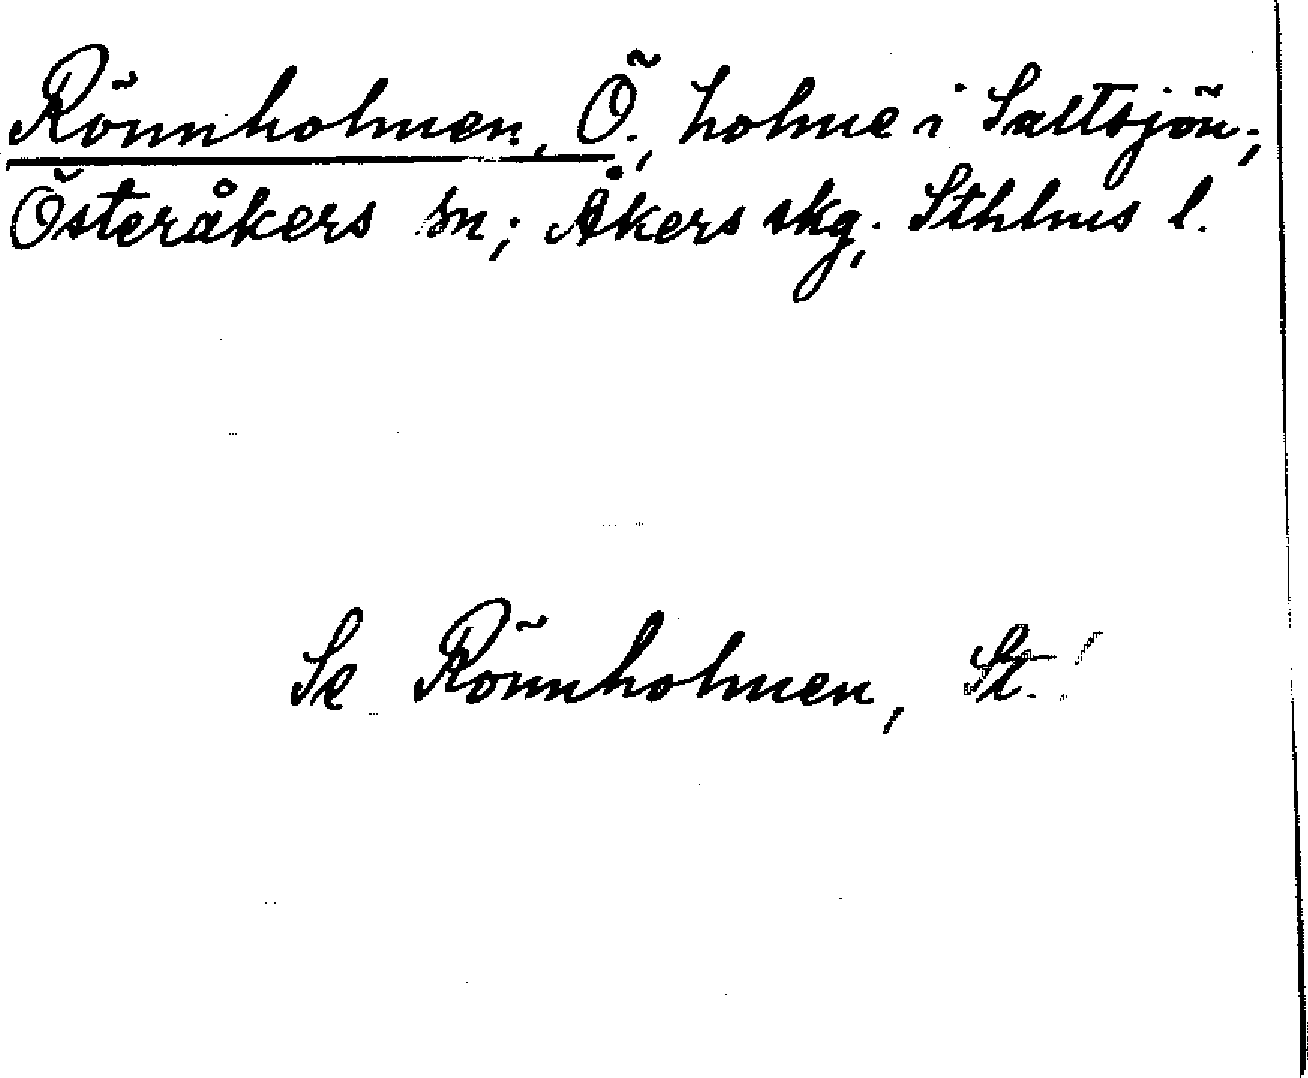 Rönnholmen, Ö., holme i Saltsjön;
Österåkers sn; Åkers skg. Sthlms l.
Se Rönnholmen, St.!